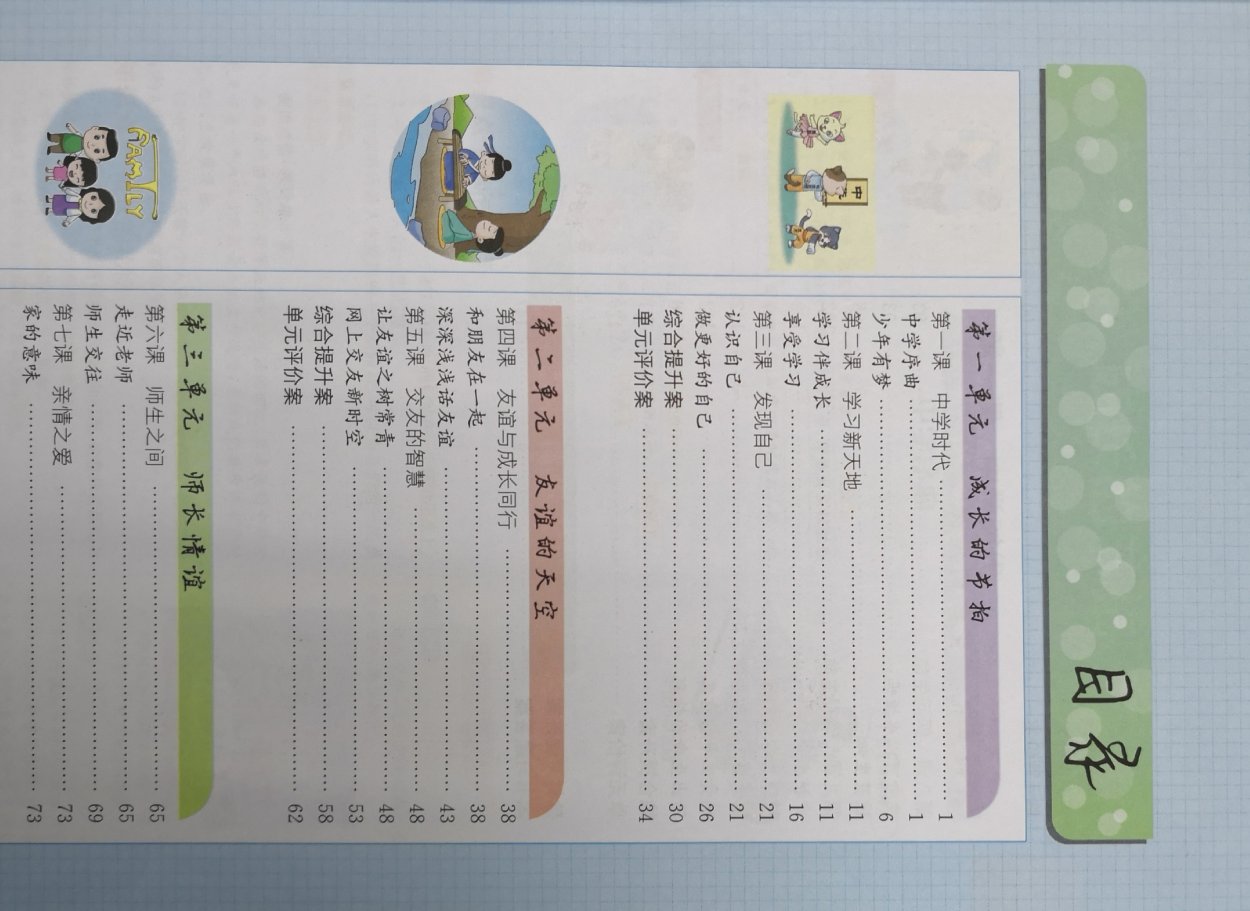 目录
第一单元 成长的节拍
第一课 中学时代 1
中学序曲 1
少年有梦 6
第二课 学习新天地 11
学习伴成长 11
享受学习 16
第三课 发现自己 21
认识自己 21
做更好的自己 26
综合提升案 30
单元评价案 34
第二单元 友谊的天空
第四课 友谊与成长同行 38
和朋友在一起 38
深深浅浅话友谊 43
第五课 交友的智慧 48
让友谊之树常青 48
网上交友新时空 53
综合提升案 58
单元评价案 62
第三单元 师长情谊
第六课 师生之间 65
走近老师 65
师生交往 69
第七课 亲情之爱 73
家的意味 73
中
FAMILY